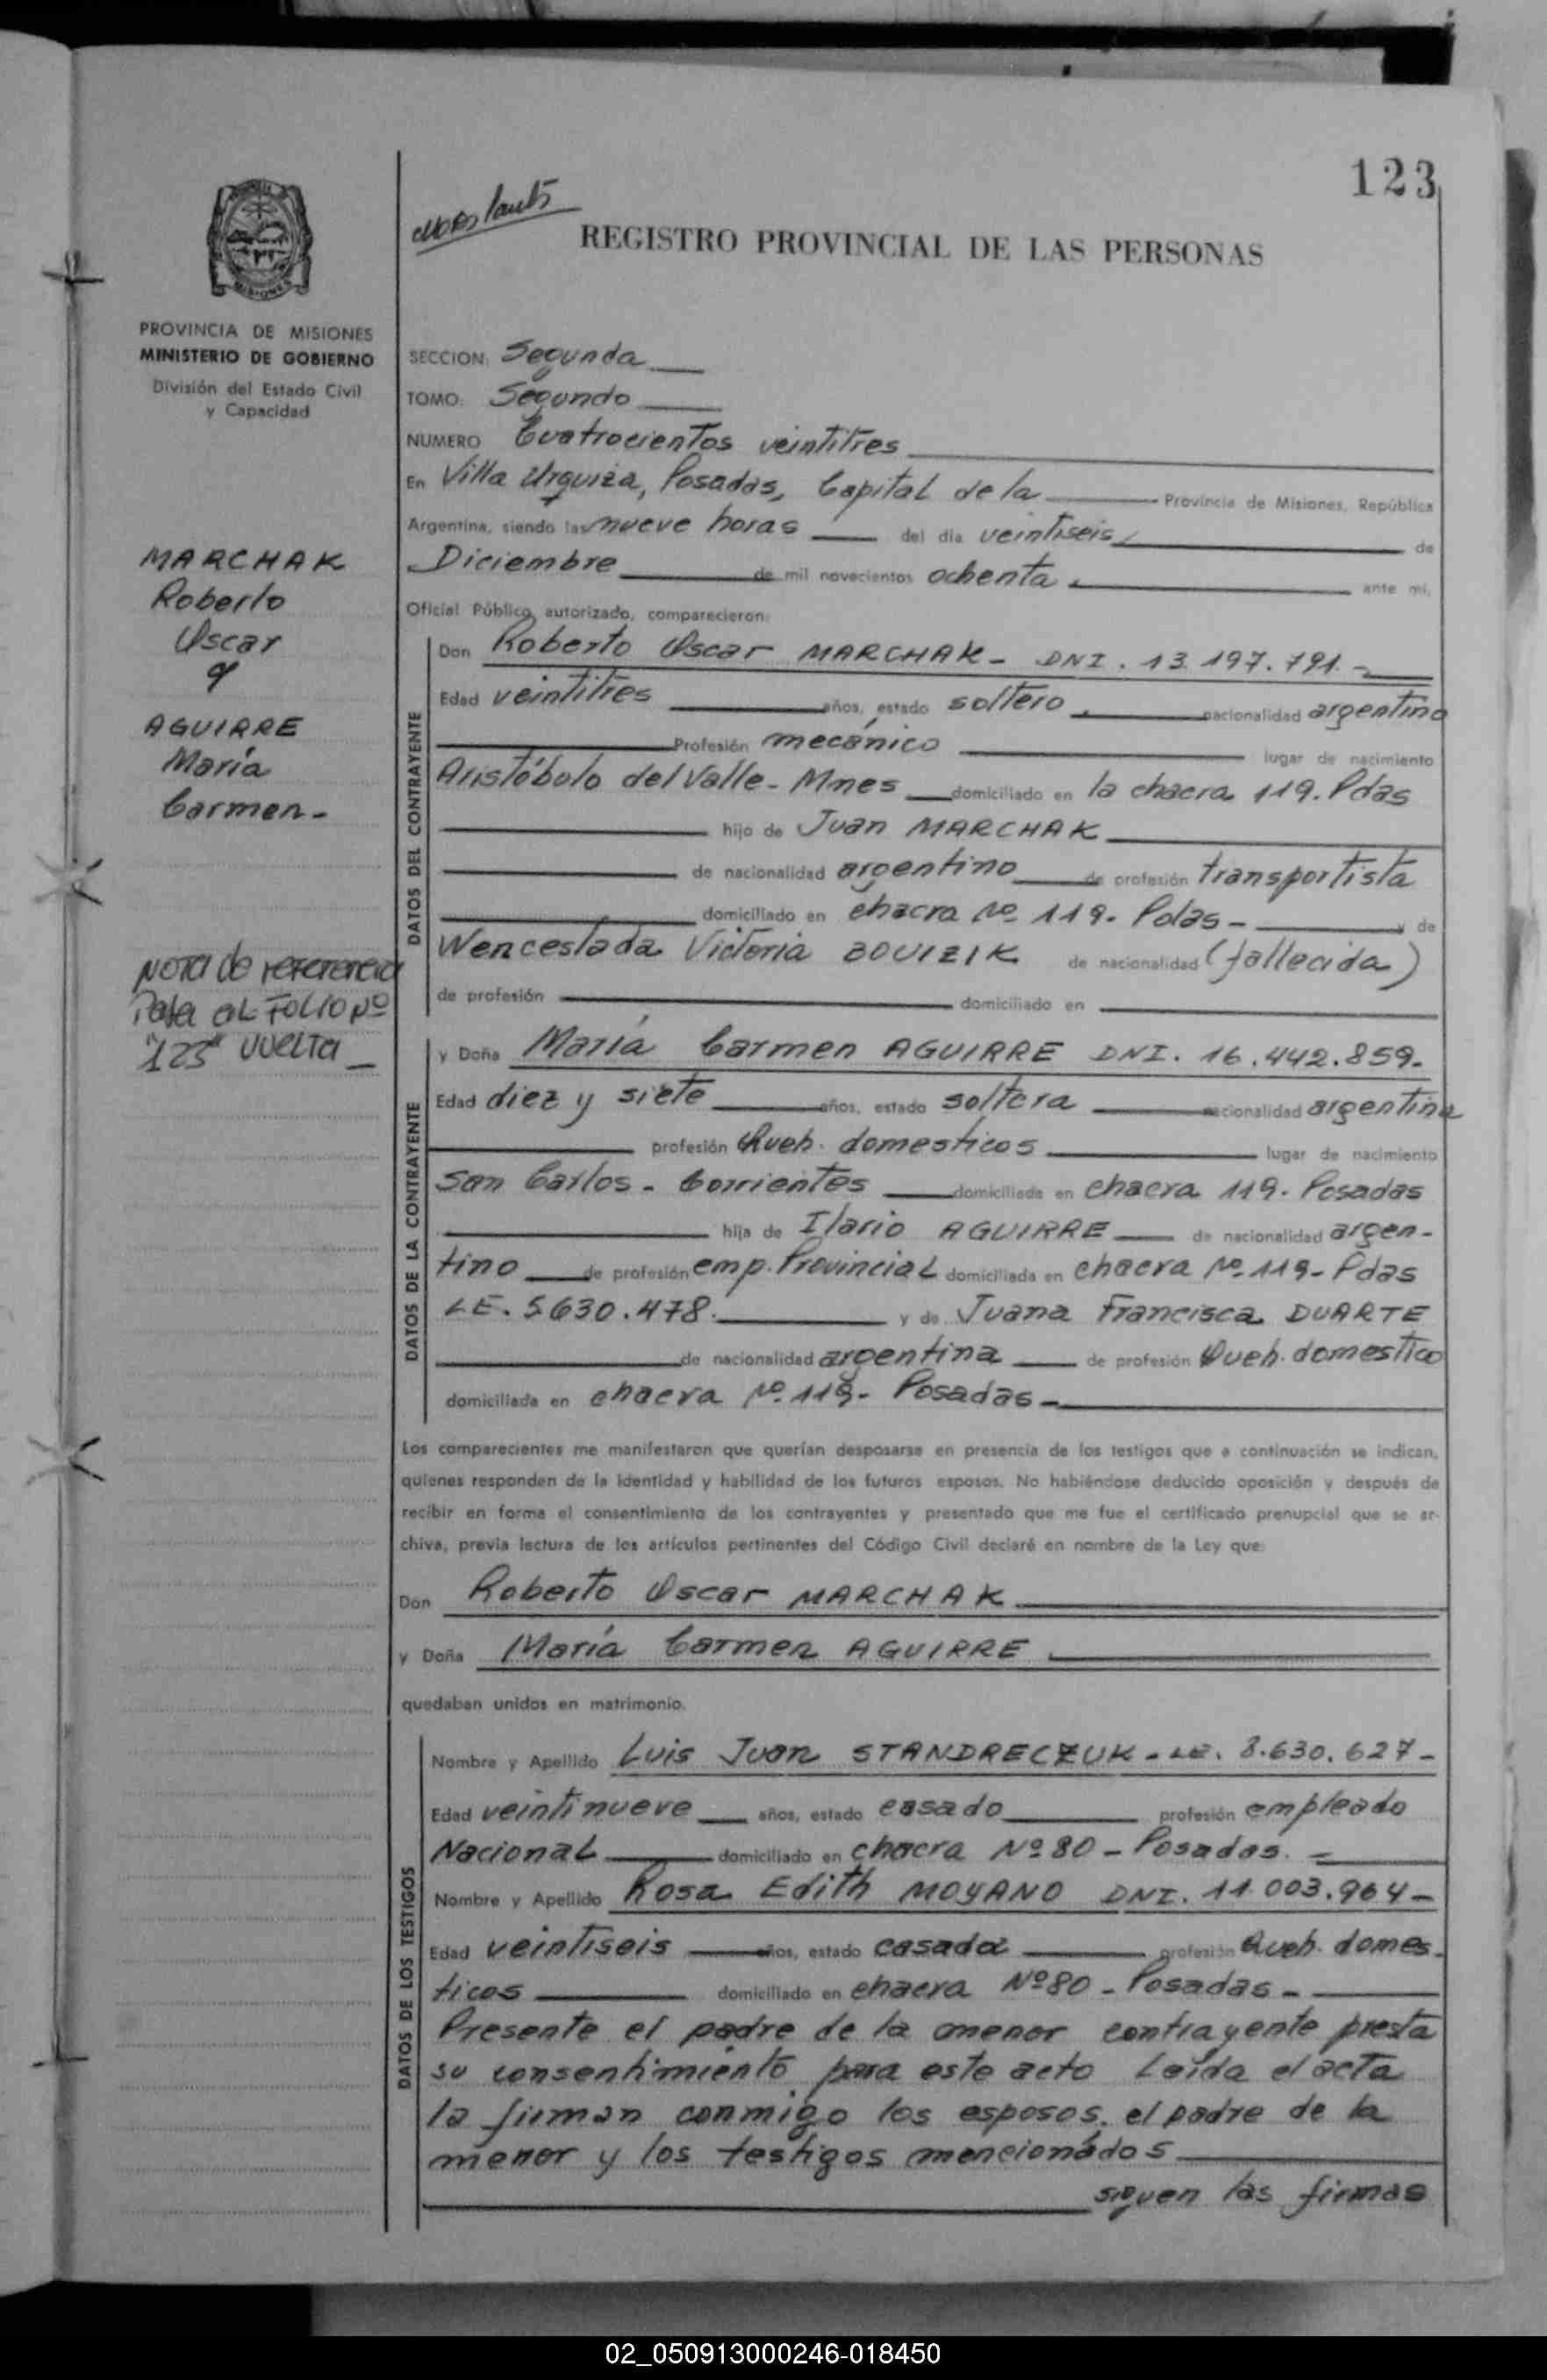 123
REGISTRO PROVINCIAL DE LAS PERSONAS
MISIONES
PROVINCIA DE MISIONES
MINISTERIO DE GOBIERNO
División del Estado Civil
y Capacidad
SECCION: Segunda
TOMO: Segundo
NUMERO Cuatrocientos veintitres
En Villa Urquiza, Posadas, Capital de la Provincia de Misiones, República
Argentina, siendo las nueve horas del día veintiseis de
Diciembre de mil novecientos ochenta ante mí,
Oficial Público autorizado, comparecieron:
MARCHAK
Roberto
Oscar
y
AGUIRRE
María
Carmen-
Nota de referencia
Pasa al FOLIO Nº
"123" vuelta
DATOS DEL CONTRAYENTE
Don Roberto Oscar MARCHAK - DNI. 13.197.791.-
Edad veintitres años, estado soltero nacionalidad argentino
Profesión mecánico lugar de nacimiento
Aristóbulo del Valle - Mnes domiciliado en la chacra 119. Pdas
hijo de Juan MARCHAK
de nacionalidad argentino de profesión transportista
domiciliado en chacra Nº 119. Pdas - y de
Wenceslada Victoria BOUIZIK de nacionalidad (fallecida)
de profesión domiciliado en
DATOS DE LA CONTRAYENTE
y Doña María Carmen AGUIRRE DNI. 16.442.859.
Edad diez y siete años, estado soltera nacionalidad argentina
profesión Queh. domesticos lugar de nacimiento
San Carlos - Corrientes domiciliada en chacra 119. Posadas
hija de Ilario AGUIRRE de nacionalidad argen-
tino de profesión emp. Provincial domiciliada en chacra Nº 119 - Pdas
LE. 5.630.478. y de Juana Francisca DUARTE
de nacionalidad argentina de profesión Queh. domestico
domiciliada en chacra Nº 119 - Posadas -
Los comparecientes me manifestaron que querían desposarse en presencia de los testigos que a continuación se indican,
quienes responden de la identidad y habilidad de los futuros esposos. No habiéndose deducido oposición y después de
recibir en forma el consentimiento de los contrayentes y presentado que me fue el certificado prenupcial que se ar-
chiva, previa lectura de los artículos pertinentes del Código Civil declaré en nombre de la Ley que:
Don Roberto Oscar MARCHAK
y Doña María Carmen AGUIRRE
quedaban unidos en matrimonio.
DATOS DE LOS TESTIGOS
Nombre y Apellido Luis Juan STANDRECZUK - LE. 8.630.627 -
Edad veintinueve años, estado casado profesión empleado
Nacional domiciliado en chacra Nº 80 - Posadas. -
Nombre y Apellido Rosa Edith MOYANO DNI. 11.003.964 -
Edad veintiseis años, estado casada profesión Queh. domes-
ticos domiciliado en chacra Nº 80 - Posadas -
Presente el padre de la menor contrayente presta
su consentimiento para este acto Leída el acta
la firman conmigo los esposos, el padre de la
menor y los testigos mencionados
siguen las firmas
02_050913000246-018450